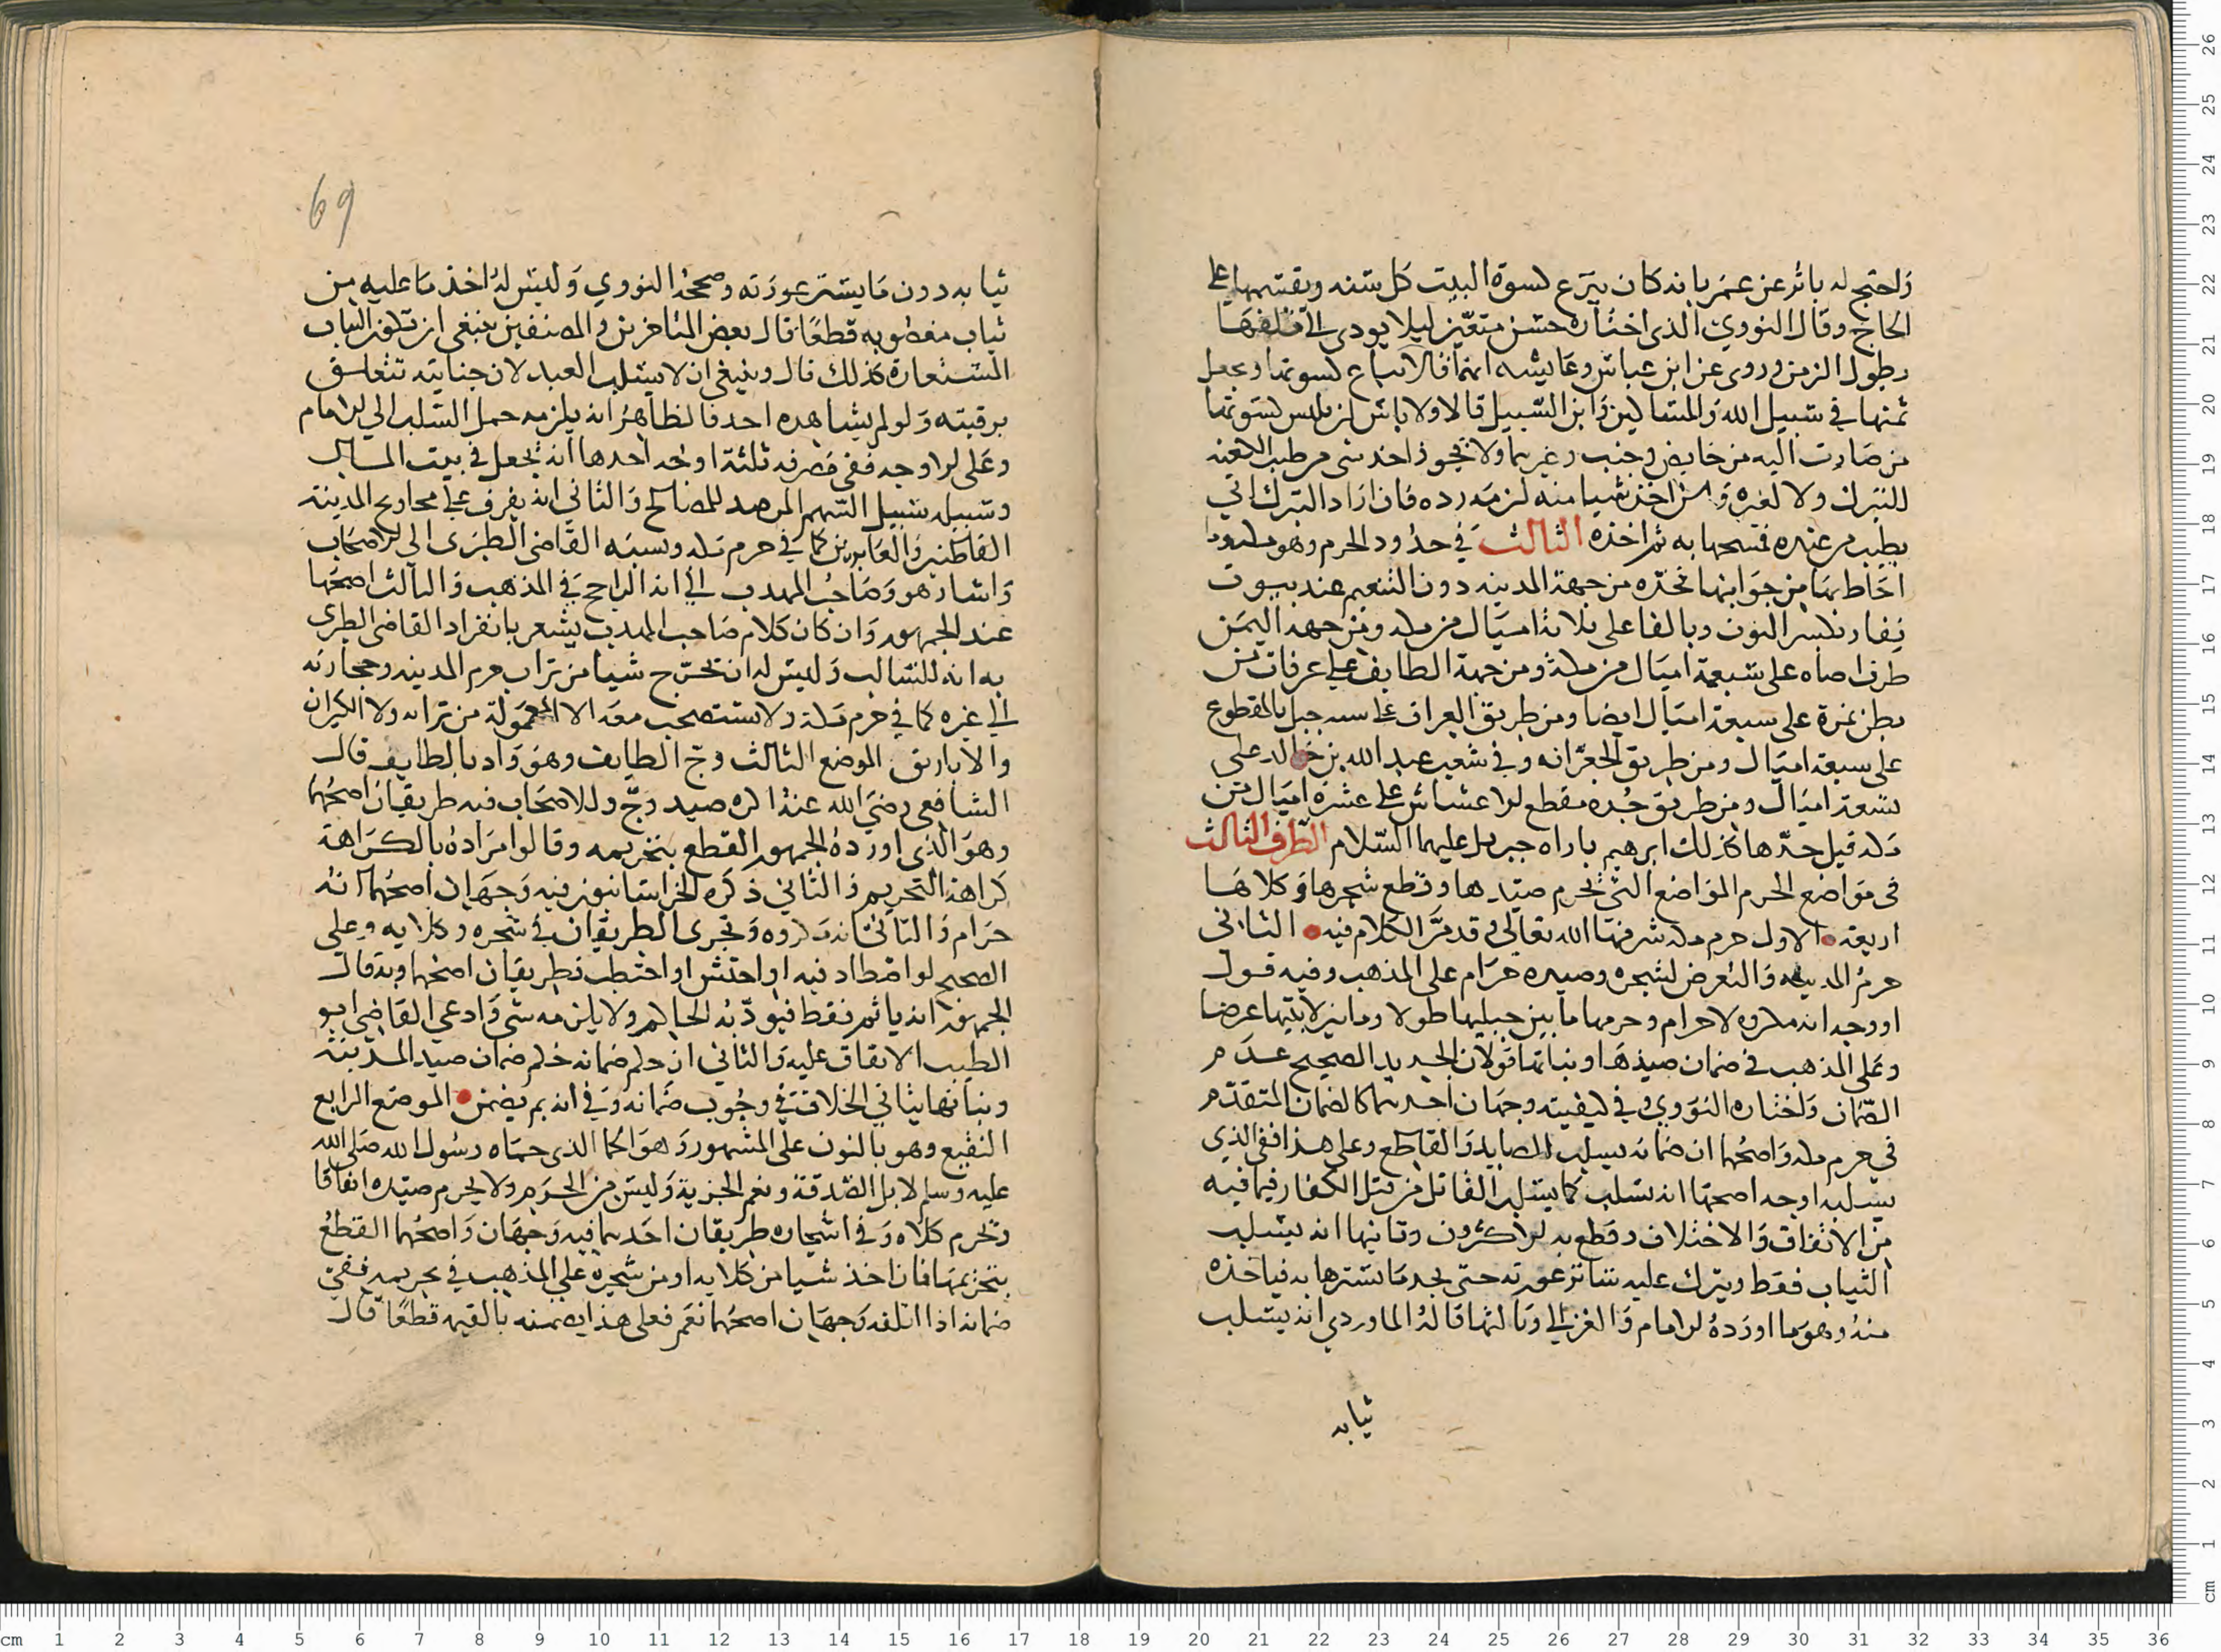 واحتج له باثر عن عمر بانه كان ينزع كسوة البيت كل سنه ويقسمها على
الحاج وقال النووي الذي اختاره حسن متعين ليلا يودى الى تلفها
بطول الزمن وروى عن ابن عباس وعايشه انهما قالا تباع كسوتها ويجعل
ثمنها في سبيل الله والمساكين وابن السبيل قالا ولا باس ان يلبس كسوتها
من صارت اليه من حايض وجنب وغيرهما ولا يجوز اخذ شى من طيب الكعبه
للتبرك ولا لغيره ومن اخذ شيا منه لزمه رده فان اراد التبرك اتى
بطيب من عنده فمسحها به ثم اخذه الثالث في حدود الحرم وهو مكه وما
احاط بها من جوانبها فحده من جهة المدينه دون التنعيم عند بيوت
نفار بكسر النون وبالفا على ثلاثة اميال من مكه ومن جهه اليمن
طرف اضاه على سبعة اميال من مكة ومن جهة الطايف على عرفات من
بطن نمرة على سبعة اميال ايضا ومن طريق العراق على جبل بالمقطوع
على سبعة اميال ومن طريق الجعرانه وفي شعب عبد الله بن خالد على
تسعة اميال ومن طريق جده مقطع الاعشاش على عشرة اميال من
مكه قيل حدها كذلك ابرهيم باراه جبريل عليهما السلام الطرف الثالث
فى مواضع الحرم المواضع التي تحرم صيدها وقطع شجرها وكلاها
اربعة الاول حرم مكه شرفها الله تعالى وقد مر الكلام فيه الثانى
حرم المدينه والتعرض لشجره وصيده حرام على المذهب وفيه قول
او وجه انه مكروه لا حرام وحرمها ما بين جبليها طولا وما بين لابتيها عرضا
وعلى المذهب في ضمان صيدها ونباتها قولان الجديد الصحيح عدم
الضمان واختاره النووي وفي كيفيته وجهان احدهما كالضمان المتقدم
في حرم مكه واصحهما ان ضمانه بسلب الصايد والقاطع وعلى هذا ففى الذي
يسلبه اوجه اصحها انه يسلب كما يسلب القاتل من قتل الكفار فيما فيه
من الاتفاق والاختلاف وقطع به الاكثرون وثانيها انه يسلب
الثياب فقط ويترك عليه ساتر عورته حتى يجد ما يسترها به فياخذه
منه وهو ما اورده الامام والغزالي وثالثها قاله الماوردي انه يسلب
ثيابه
69
ثيابه دون ما يستر عورته وصححه النووي وليس له اخذ ما عليه من
ثياب مغصوبه قطعا قال بعض المتاخرين والمصنفين ينبغى ان تكون الثياب
المستعارة كذلك قال وينبغي ان لا يسلب العبد لان جنايته تتعلق
برقبته ولو لم يشاهده احد فالظاهر انه يلزمه حمل السلب الى الامام
وعلى الاوجه ففي مصرفه ثلثة اوجه احدها انه يجعل في بيت المال
وسبيله سبيل السهم المرصد للمصالح والثاني انه يفرق على محاويج المدينة
القاطنين والعابرين كما في حرم مكه ونسبه القاضي الطبرى الى الاصحاب
واشار هو وصاحب المهذب الى انه الراجح في المذهب والثالث اصحها
عند الجمهور وان كان كلام صاحب المهذب يشعر بانفراد القاضي الطبرى
به انه للسالب وليس له ان يخرج شيا من تراب حرم المدينه وحجارته
الى غيره كما في حرم مكة ولا يستصحب معه الاكر المعمولة من ترابه ولا الكيزان
والاباريق الموضع الثالث وج الطايف وهو واد بالطايف قال
الشافعي رضي الله عنه اكره صيد وج وللاصحاب فيه طريقان اصحهما
وهو الذى اورده الجمهور القطع بتحريمه وقالوا مراده بالكراهة
كراهة التحريم والثاني ذكره الخراسانيون فيه وجهان اصحهما انه
حرام والثاني انه مكروه وتجرى الطريقان في شجره وكلايه وعلى
الصحيح لو اصطاد فيه او احتش او احتطب فطريقان اصحهما وبه قال
الجمهور انه ياثم فقط فيودبه الحاكم ولا يلزمه شى وادعي القاضي ابو
الطيب الاتفاق عليه والثاني ان حكم ضمانه حكم ضمان صيد المدينة
ونباتها ياتي الخلاف في وجوب ضمانه وفي انه بم يضمن الموضع الرابع
النقيع وهو بالنون على المشهور وهو الحما الذى حماه رسول الله صلى الله
عليه وسلم لابل الصدقة ونعم الجزية وليس من الحرم ولا يحرم صيده اتفاقا
ويحرم كلاه وفي اشجاره طريقان احدهما فيه وجهان واصحهما القطع
بتحريمها فان اخذ شيا من كلايه او من شجره على المذهب في تحريمه ففي
ضمانه اذا اتلفه وجهان اصحهما نعم فعلى هذا يضمنه بالقيمه قطعا قال